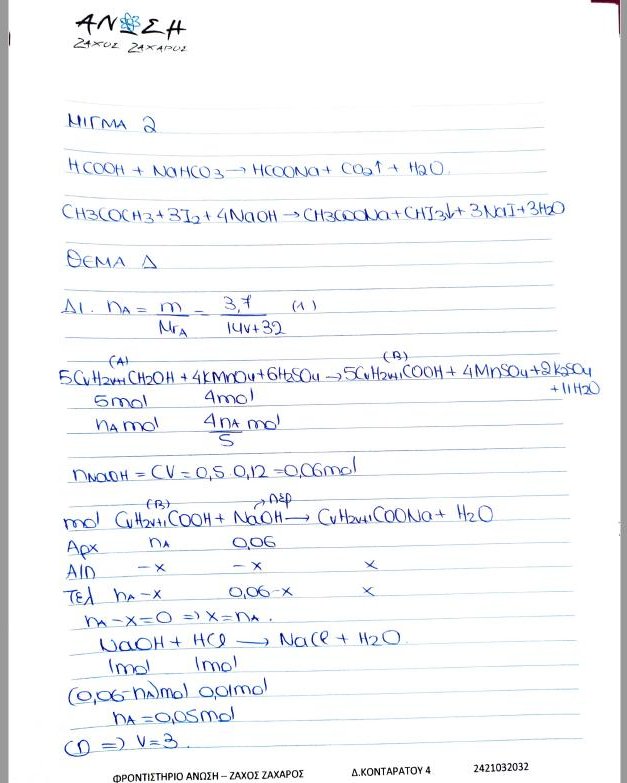 ΑΝΩΣΗ
ΖΑΧΟΣ ΖΑΧΑΡΟΣ
ΜΙΓΜΑ 2
HCOOH + NaHCO3 → HCOONa + CO2↑ + H2O.
CH3COCH3 + 3I2 + 4NaOH → CH3COONa + CHI3↓ + 3NaI + 3H2O
ΘΕΜΑ Δ
Δ1. nA = m/MrA = 3,7/(14ν+32) (1)
(A) (B)
5CνH2ν+1CH2OH + 4KMnO4 + 6H2SO4 → 5CνH2ν+1COOH + 4MnSO4 + 2K2SO4
+ 11H2O
5mol 4mol
nA mol 4nA/5 mol
nNaOH = CV = 0,5 0,12 = 0,06mol
(B) → περ
mol CνH2ν+1COOH + NaOH → CνH2ν+1COONa + H2O
Αρχ nA 0,06
Α/Π -x -x x
Τελ nA-x 0,06-x x
nA-x=0 => x=nA.
NaOH + HCl → NaCl + H2O.
1mol 1mol
(0,06-nA)mol 0,01mol
nA = 0,05mol
(1) => ν=3.
ΦΡΟΝΤΙΣΤΗΡΙΟ ΑΝΩΣΗ – ΖΑΧΟΣ ΖΑΧΑΡΟΣ Δ.ΚΟΝΤΑΡΑΤΟΥ 4 2421032032